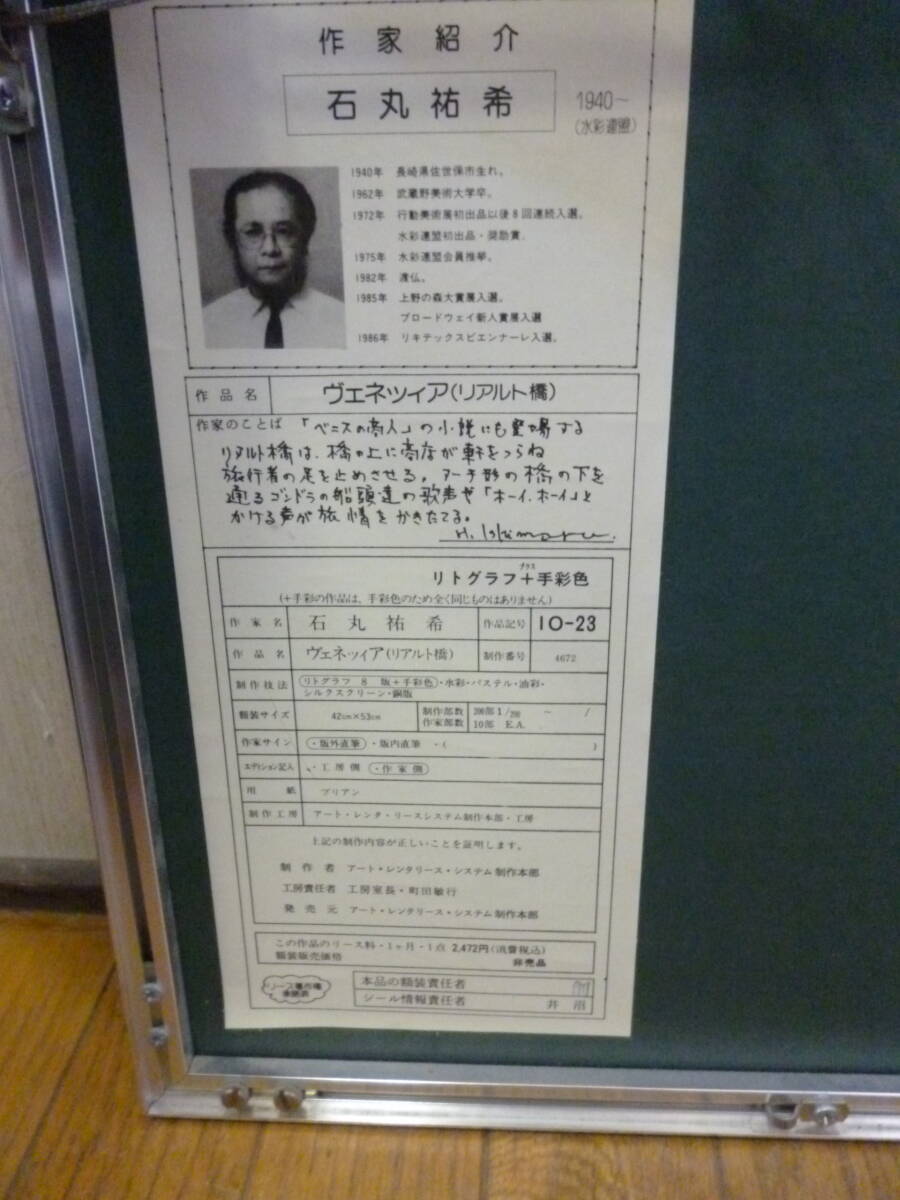 作家紹介
石丸祐希
1940～
(水彩連盟)
1940年 長崎県佐世保市生れ。
1962年 武蔵野美術大学卒。
1972年 行動美術展初出品以後8回連続入選。
水彩連盟初出品・奨励賞.
1975年 水彩連盟会員推挙。
1982年 渡仏。
1985年 上野の森大賞展入選。
ブロードウェイ新人賞展入選
1986年 リキテックスビエンナーレ入選。
作品名 ヴェネツィア(リアルト橋)
作家のことば 「ベニスの商人」の小説にも登場する
リアルト橋は、橋の上に商店が軒をつらね
旅行者の足を止めさせる。アーチ形の橋の下を
通るゴンドラの船頭達の歌声や「ホーイ、ホーイ」と
かける声が旅情をかきたてる。
H. Ishimaru.
プラス
リトグラフ+手彩色
(+手彩の作品は、手彩色のため全く同じものはありません)
作家名 石丸祐希 作品記号 IO-23
作品名 ヴェネツィア(リアルト橋) 制作番号 4672
制作技法 リトグラフ 8 版+手彩色・水彩・パステル・油彩・
シルクスクリーン・銅版
額装サイズ 42cm×53cm 制作部数 200部 1/200 ～ /
作家部数 10部 E.A.
作家サイン ・版外直筆 ・版内直筆 ・( )
エディション記入 ・工房側 ・作家側
用紙 ブリアン
制作工房 アート・レンタ・リースシステム制作本部・工房
上記の制作内容が正しいことを証明します。
制作者 アート・レンタリース・システム制作本部
工房責任者 工房室長・町田敏行
発売元 アート・レンタリース・システム制作本部
この作品のリース料・1ヶ月・1点 2,472円(消費税込)
額装販売価格 非売品
本品の額装責任者
シール情報責任者 井沼